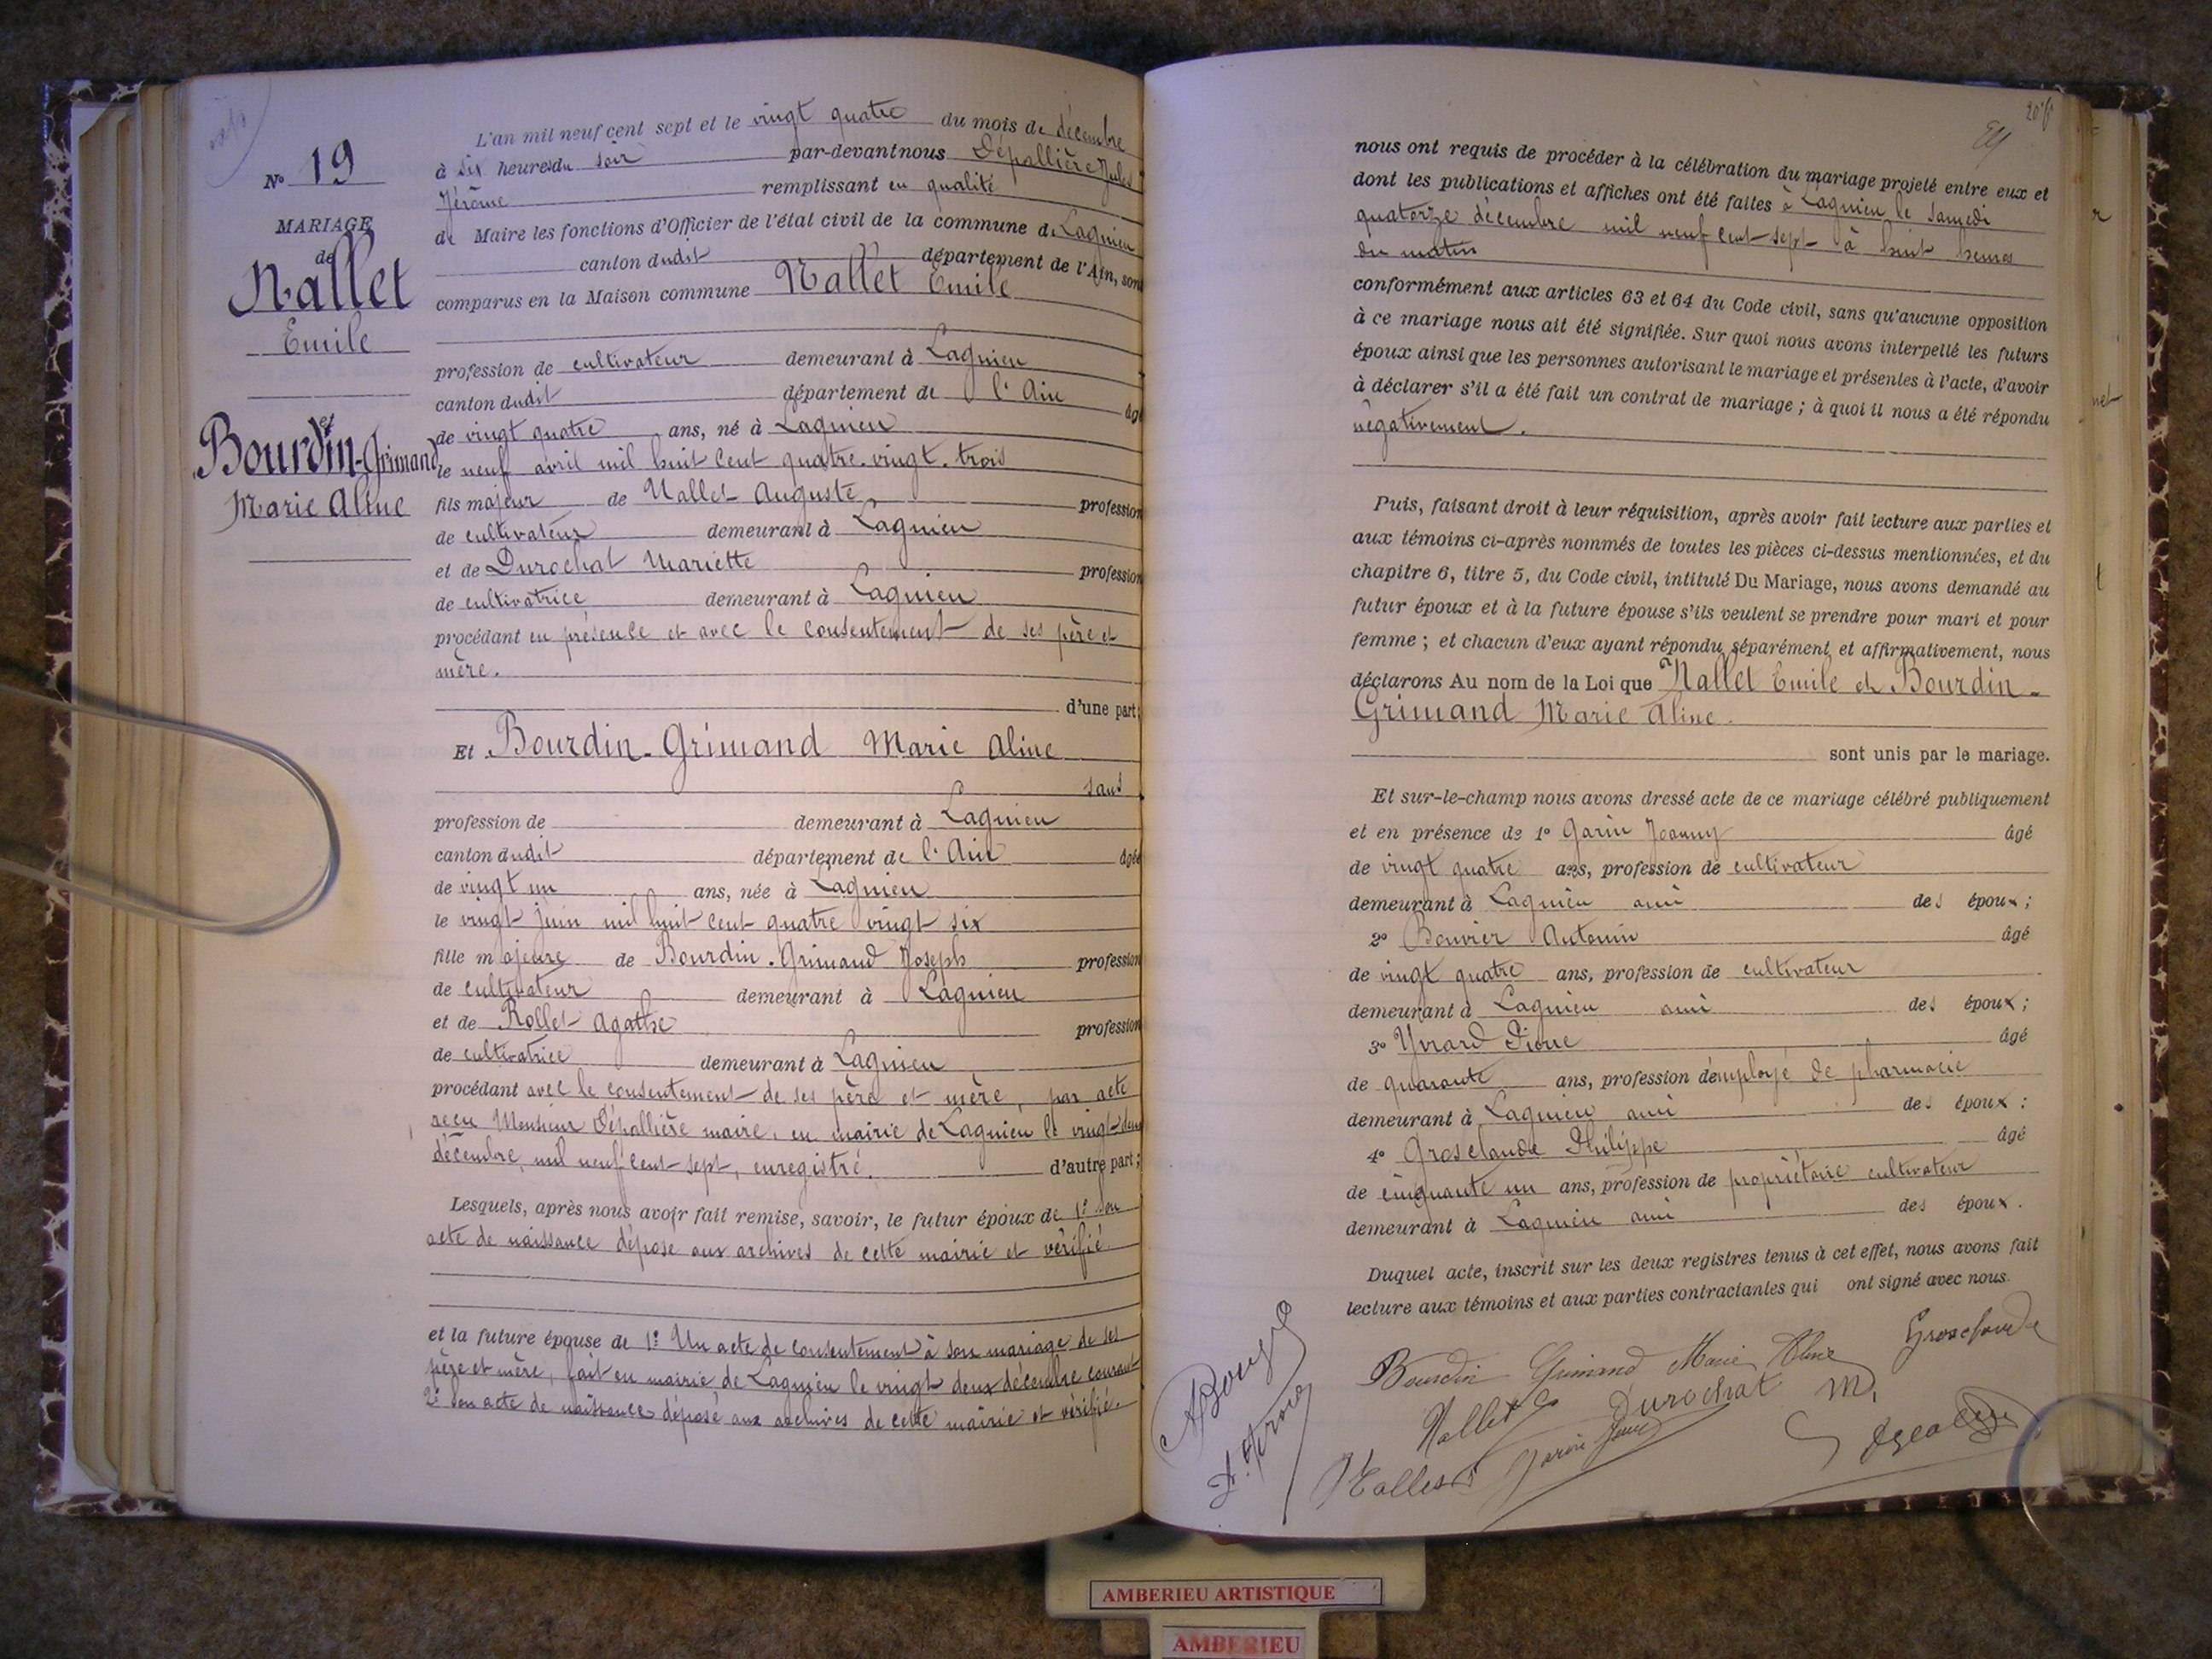 N° 19
MARIAGE
de
Nallet
Emile
et
Bourdin-Grimand
Marie Aline
L'an mil neuf cent sept et le vingt quatre du mois de décembre
à six heures du soir par-devant nous Dépallière Jules
Jérôme remplissant en qualité
de Maire les fonctions d'Officier de l'état civil de la commune de Lagnieu
canton dudit département de l'Ain, sont
comparus en la Maison commune Nallet Emile
profession de cultivateur demeurant à Lagnieu
canton dudit département de l'Ain âgé
de vingt quatre ans, né à Lagnieu
le neuf avril mil huit cent quatre-vingt-trois
fils majeur de Nallet Auguste profession
de cultivateur demeurant à Lagnieu
et de Durochat Mariette profession
de cultivatrice demeurant à Lagnieu
procédant en présence et avec le consentement de ses père et
mère.
d'une part;
Et Bourdin-Grimand Marie Aline
sans
profession de demeurant à Lagnieu
canton dudit département de l'Ain âgée
de vingt un ans, née à Lagnieu
le vingt juin mil huit cent quatre vingt six
fille majeure de Bourdin-Grimand Joseph profession
de cultivateur demeurant à Lagnieu
et de Rollet Agathe profession
de cultivatrice demeurant à Lagnieu
procédant avec le consentement de ses père et mère, par acte
reçu Monsieur Dépallière maire, en mairie de Lagnieu le vingt-deux
décembre mil neuf cent sept, enregistré. d'autre part;
Lesquels, après nous avoir fait remise, savoir, le futur époux de 1° son
acte de naissance déposé aux archives de cette mairie et vérifié.
et la future épouse de 1° Un acte de consentement à son mariage de ses
père et mère, fait en mairie de Lagnieu le vingt deux décembre courant
2° son acte de naissance déposé aux archives de cette mairie et vérifié.
nous ont requis de procéder à la célébration du mariage projeté entre eux et
dont les publications et affiches ont été faites à Lagnieu le samedi
quatorze décembre mil neuf cent sept à huit heures
du matin
conformément aux articles 63 et 64 du Code civil, sans qu'aucune opposition
à ce mariage nous ait été signifiée. Sur quoi nous avons interpellé les futurs
époux ainsi que les personnes autorisant le mariage et présentes à l'acte, d'avoir
à déclarer s'il a été fait un contrat de mariage ; à quoi il nous a été répondu
négativement.
Puis, faisant droit à leur réquisition, après avoir fait lecture aux parties et
aux témoins ci-après nommés de toutes les pièces ci-dessus mentionnées, et du
chapitre 6, titre 5, du Code civil, intitulé Du Mariage, nous avons demandé au
futur époux et à la future épouse s'ils veulent se prendre pour mari et pour
femme ; et chacun d'eux ayant répondu séparément et affirmativement, nous
déclarons Au nom de la Loi que Nallet Emile et Bourdin-
Grimand Marie Aline.
sont unis par le mariage.
Et sur-le-champ nous avons dressé acte de ce mariage célébré publiquement
et en présence de 1° Garin Joanny âgé
de vingt quatre ans, profession de cultivateur
demeurant à Lagnieu ami des époux ;
2° Bouvier Antonin âgé
de vingt quatre ans, profession de cultivateur
demeurant à Lagnieu ami des époux ;
3° Yvrard Pierre âgé
de quarante ans, profession d'employé de pharmacie
demeurant à Lagnieu ami des époux ;
4° Grosclaude Philippe âgé
de cinquante un ans, profession de propriétaire cultivateur
demeurant à Lagnieu ami des époux.
Duquel acte, inscrit sur les deux registres tenus à cet effet, nous avons fait
lecture aux témoins et aux parties contractantes qui ont signé avec nous.
Bourdin Grimand Marie Aline Grosclaude
Nallet E Durochat M.
Nallet
AMBERIEU ARTISTIQUE
AMBERIEU